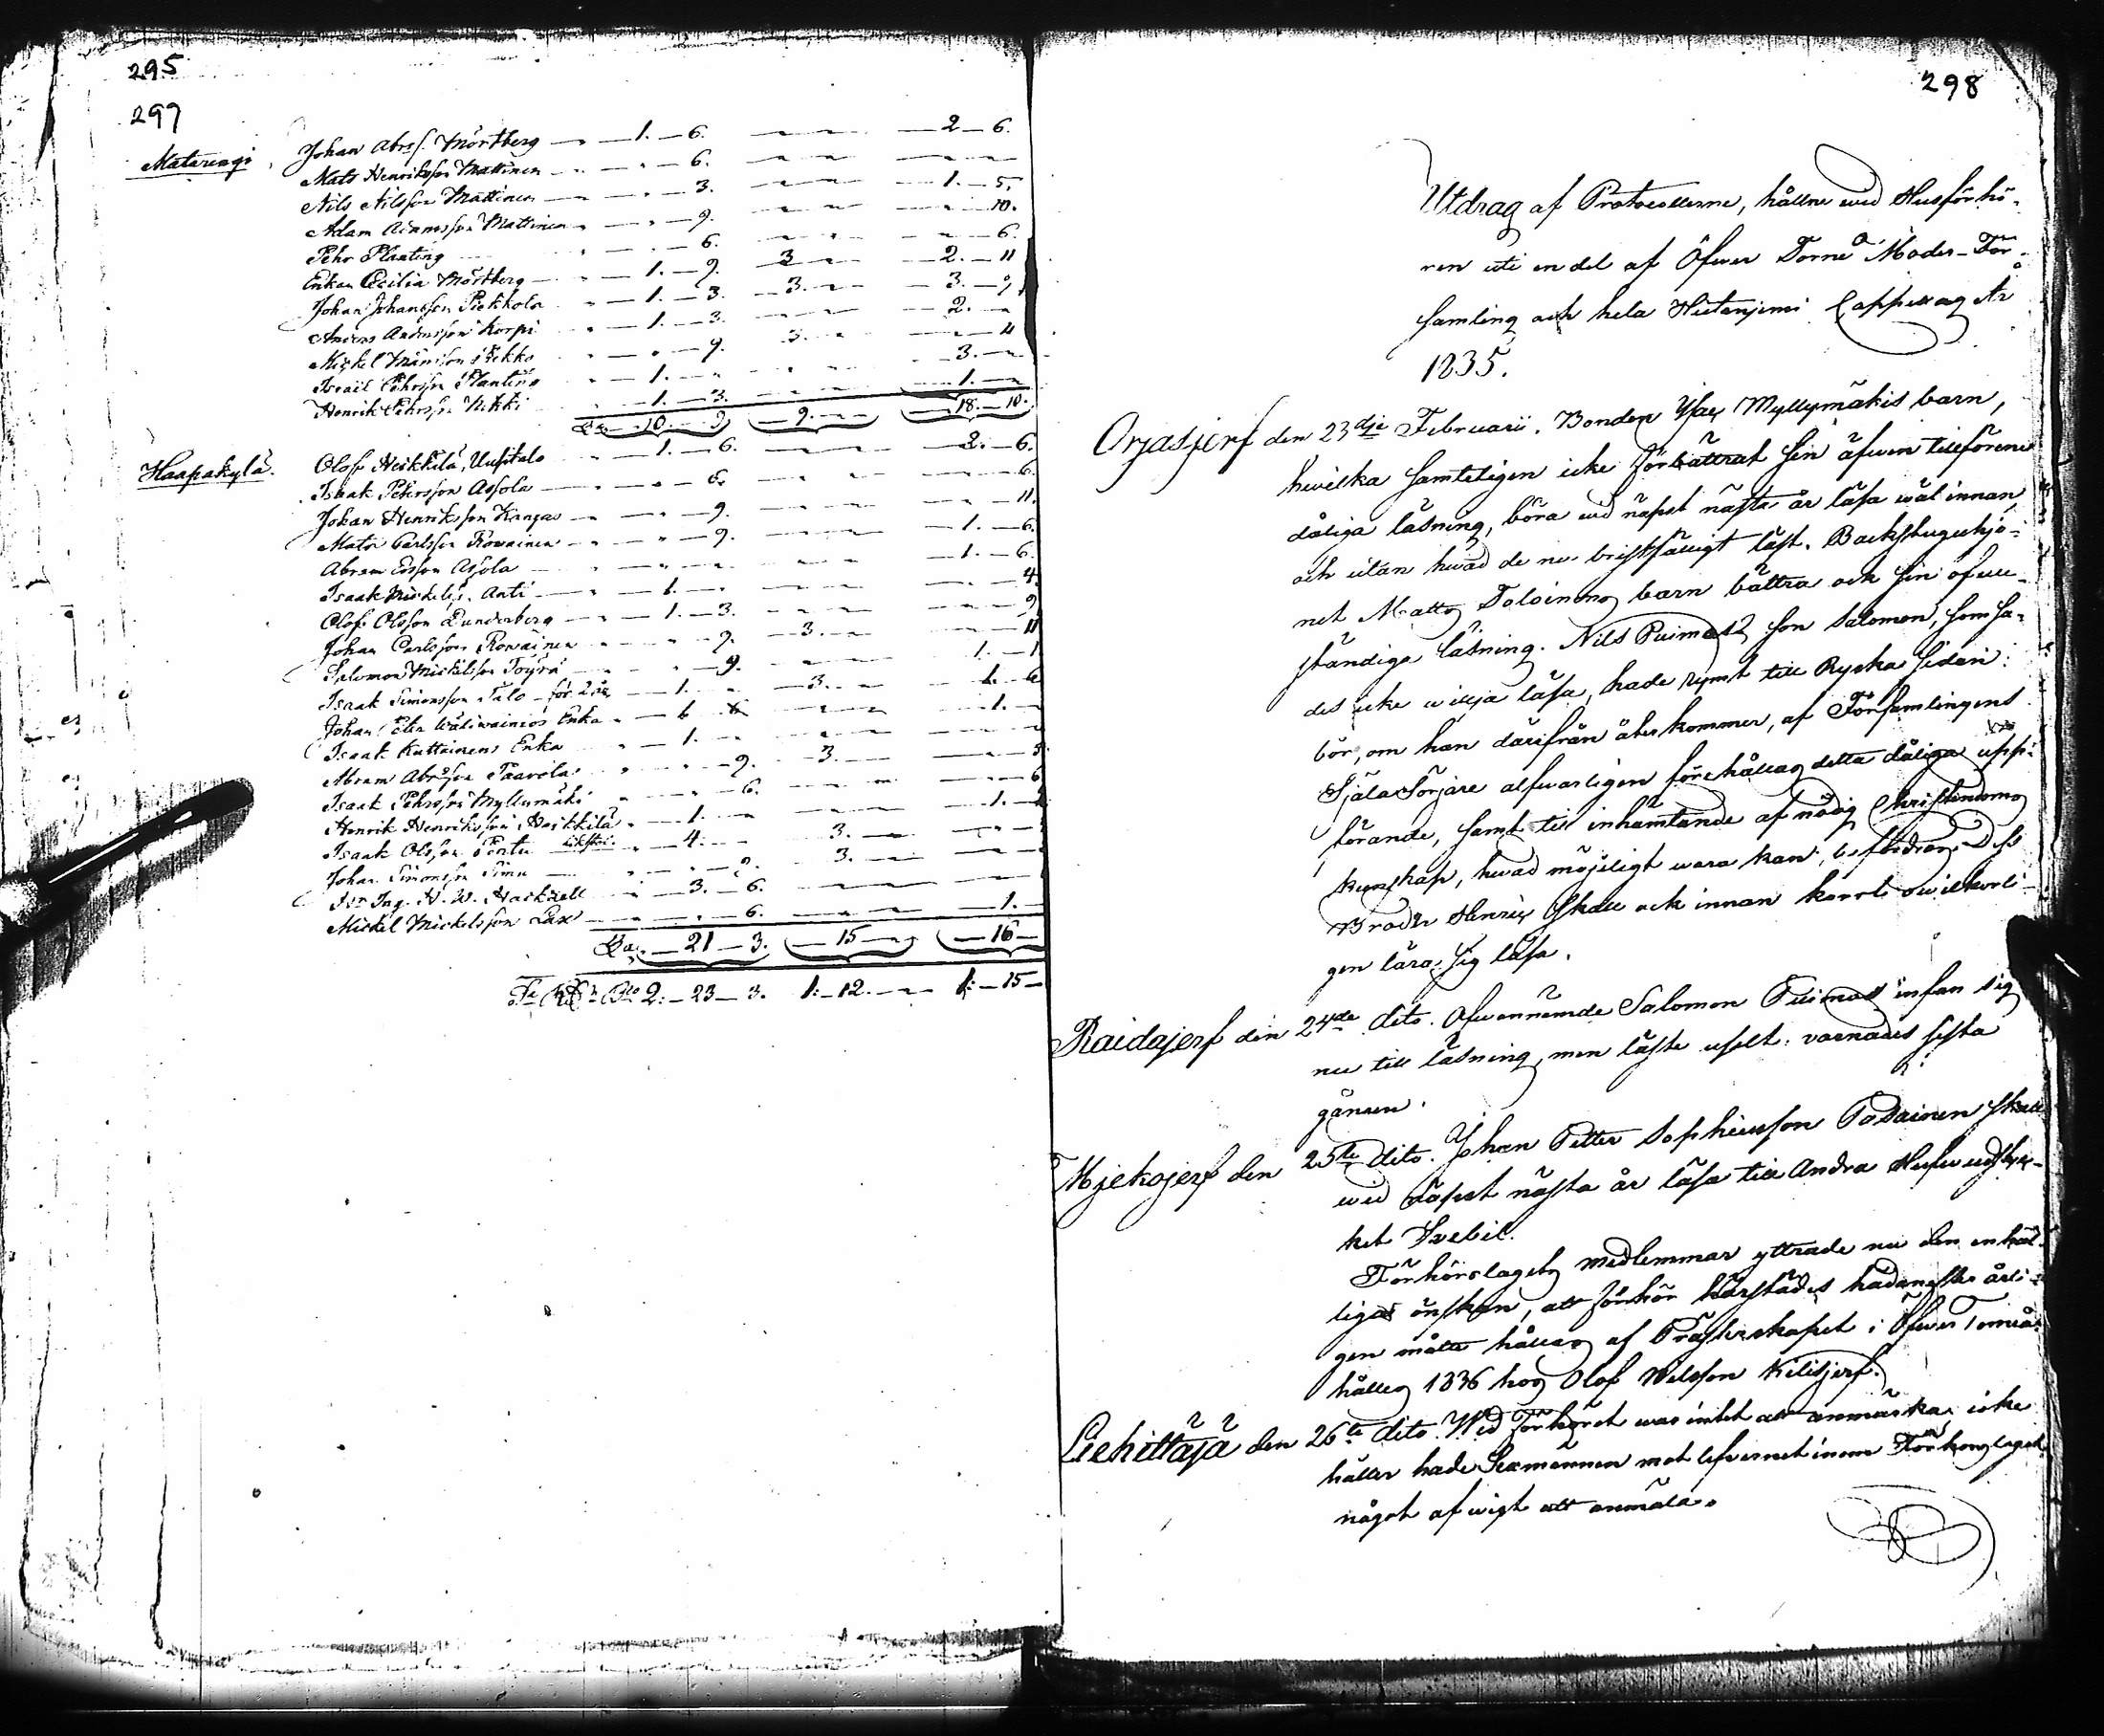 295
297
Matarengi
Johan Abrss. Mörtberg — 1. — 6. — 2 — 6.
Mats Henriksson Mattinen — 6.
Nils Nilsson Mattinen — 3. — 1. — 5.
Adam Adamsson Mattinen — 9. — 10.
Pehr Planting — 6. — 6.
Enkan Cecilia Mörtberg — 1. — 9. 3 — 2. — 11
Johan Johansson Piekkola — 1. — 3. — 3. — 3. — 9
Anders Andersson Korpi — 1. — 3. — 2.
Mickel Månsson — 9. 3. — 4
Israel Pehrsson Planting — 1. — 3.
Henrik Pehrsson Nikki — 1. — 3. — 1.
10. — 9 — 9. — 18. — 10.
Haapakylä.
Olof Heikkilä, Uusitalo — 1. — 6. — 2. — 6.
Isaak Pehrsson Assola — 6. — 6.
Johan Henriksson Kangas — 9. — 11.
Mats Carlsson Rowainen — 9. — 1. — 6.
Abram Assola — 1. — 6.
Isaak Mickelss. Anti — 1. — 4.
Olof Olsson Lunderberg — 1. — 3. — 9
Johan Carlsson Rowainen — 9. — 3. — 11
Salomon Mickelsson Töyrä — 9. — 1. — 1
Isaak Simonsson Talo för 2 år — 1. — 3.
Johan Enka — 1.
Isaak Kuttainens Enka — 1.
Abram Abrsson Paavola — 9. — 3. — 3
Isaak Pehrsson Myllymäki — 6. — 6
Henrik Henriksson Heikkilä — 1. — 1.
Isaak Olsson Perttu — 4. — 3.
Johan Simonsson Simu — 3.
N. W. Hackzell — 3. — 6.
Mickel Mickelsson Lax — 6. — 1. —
21 — 3. — 15 — — 16 —
2: — 23 — 3. 1: — 12. — 1: — 15 —
298
Utdrag af Protocollerne, hållne wid Husförhö-
ren uti en del af Öfwer Torneå Moder-För-
samling och hela Hietaniemi Cappellag År
1835.
Orjasjerf den 23dje Februarii. Bonden Isax Myllymäkis barn,
hwilka samteligen icke förbättrat sin äfwen tillförene
dåliga läsning, böra wid näpst nästa år läsa wäl innan
och utan hwad de nu bristfälligt läst. Backstuguhjo-
net Matts Toloinens barn bättra ock sin ofull-
ständiga läsning. Nils Puimas son Salomon, som sa-
des icke wilja läsa, hade rymt till Ryska sidan:
bör, om han därifrån återkommer, af Församlingens
Själasörjare alfwarligen förehållas detta dåliga upp-
förande, samt till inhämtande af nödig Christendoms
kunskap, hwad möjeligt wara kan, befordras. Dess
Broder Henric skall ock innan kort owilkorli-
gen lära sig läsa.
Raidajerf den 24de dito. Ofwannämde Salomon Puimas infan sig
nu till läsning, men läste uselt: varnades sista
gången.
Mjekojerf den 25te dito. Johan Petter Sophiusson Padainen skall
wid näpst nästa år läsa till Andra Hufwudstyc-
ket Svebil.
Förhörslagets medlemmar yttrade nu den enhäl-
liga önskan, att förhör härstädes hädanefter årli-
gen måtte hållas af Prästerskapet i Öfwer Torneå:
hålles 1836 hos Olof Nilsson Kilisjerf.
Liehittäjä den 26te dito. Wid förhöret war intet att anmärka, icke
häller hade Sexmännen mot lefwernet inom Förhörslaget
något af wigt att anmäla.